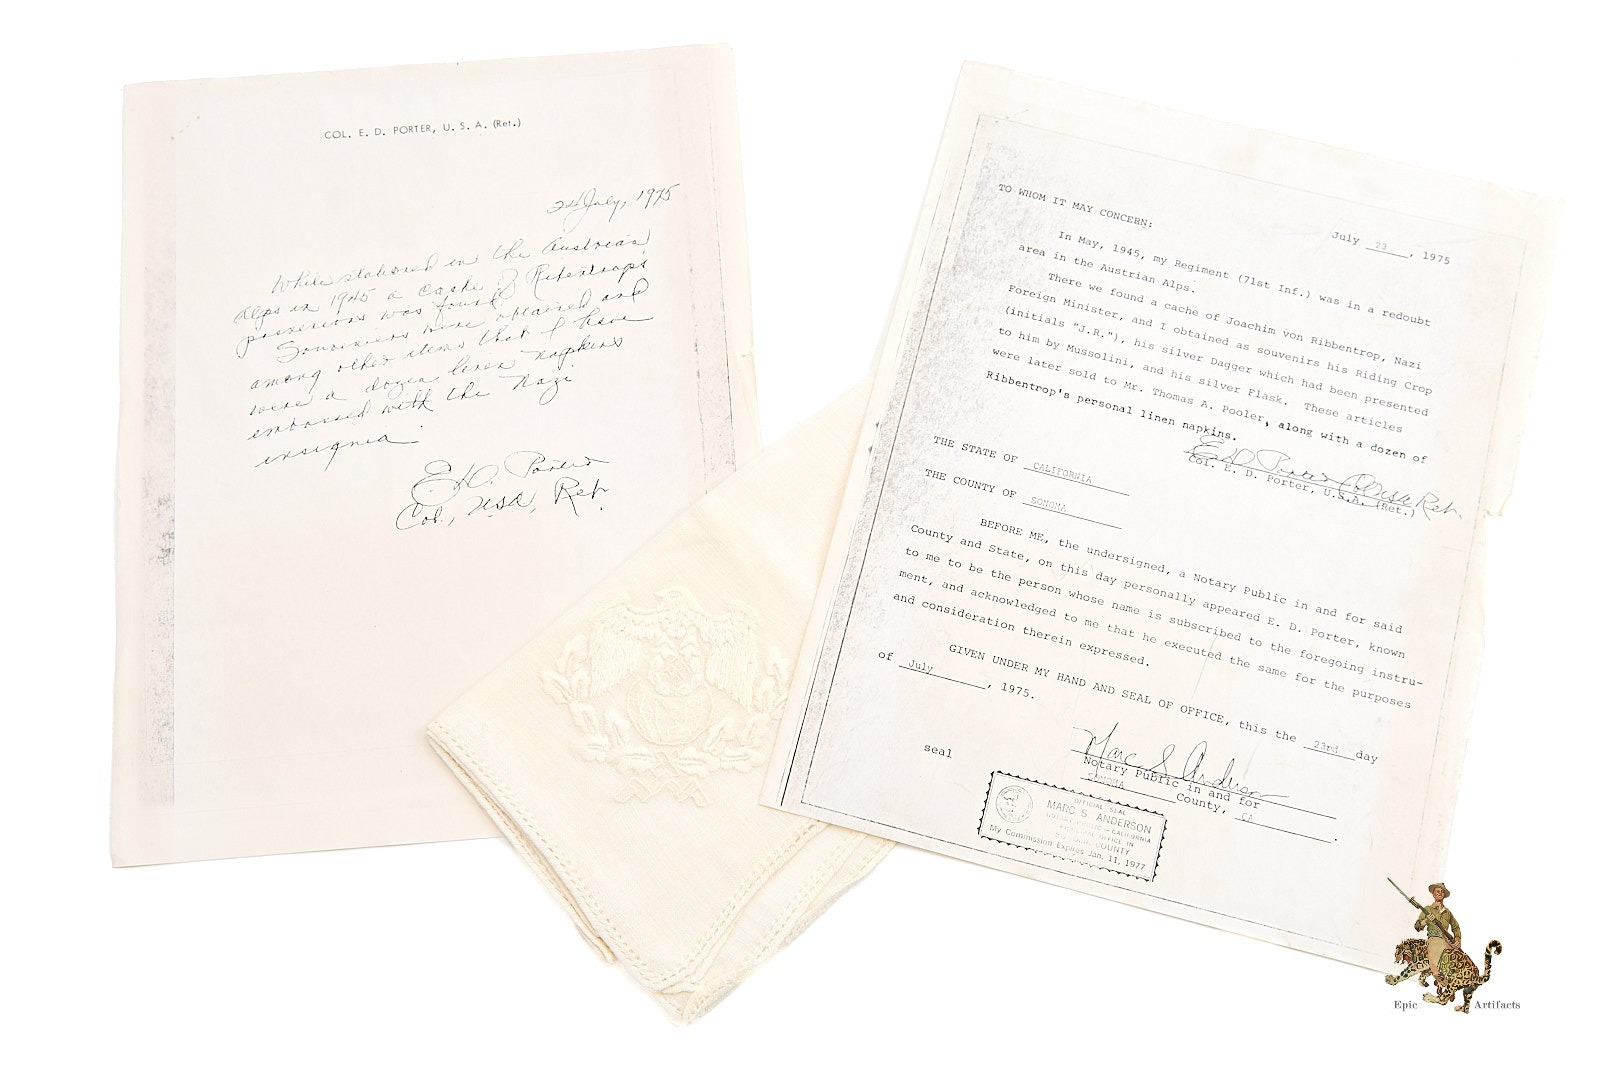 COL. E. D. PORTER, U. S. A. (Ret.)
July, 1975
While stationed in the Austrian
Alps in 1945 a cache of Ribentrop's
possesions was found.
Souveniers were obtained and
among other items that I have
were a dozen linen napkins
embossed with the Nazi
insignia.
E. D. Porter
Col., USA, Ret.
TO WHOM IT MAY CONCERN:
July 23, 1975
In May, 1945, my Regiment (71st Inf.) was in a redoubt
area in the Austrian Alps.
There we found a cache of Joachim von Ribbentrop, Nazi
Foreign Minister, and I obtained as souvenirs his Riding Crop
(initials "J.R."), his silver Dagger which had been presented
to him by Mussolini, and his silver Flask. These articles
were later sold to Mr. Thomas A. Pooler, along with a dozen of
Ribbentrop's personal linen napkins.
E. D. Porter Col USA Ret.
Col. E. D. Porter, U.S.A. (Ret.)
THE STATE OF CALIFORNIA
THE COUNTY OF SONOMA
BEFORE ME, the undersigned, a Notary Public in and for said
County and State, on this day personally appeared E. D. Porter, known
to me to be the person whose name is subscribed to the foregoing instru-
ment, and acknowledged to me that he executed the same for the purposes
and consideration therein expressed.
GIVEN UNDER MY HAND AND SEAL OF OFFICE, this the 23rd day
of July, 1975.
seal
Marc S. Anderson
Notary Public in and for
SONOMA County, CA.
OFFICIAL SEAL
MARC S. ANDERSON
NOTARY PUBLIC - CALIFORNIA
PRINCIPAL OFFICE IN
COUNTY
My Commission Expires Jan. 11, 1977
Epic Artifacts